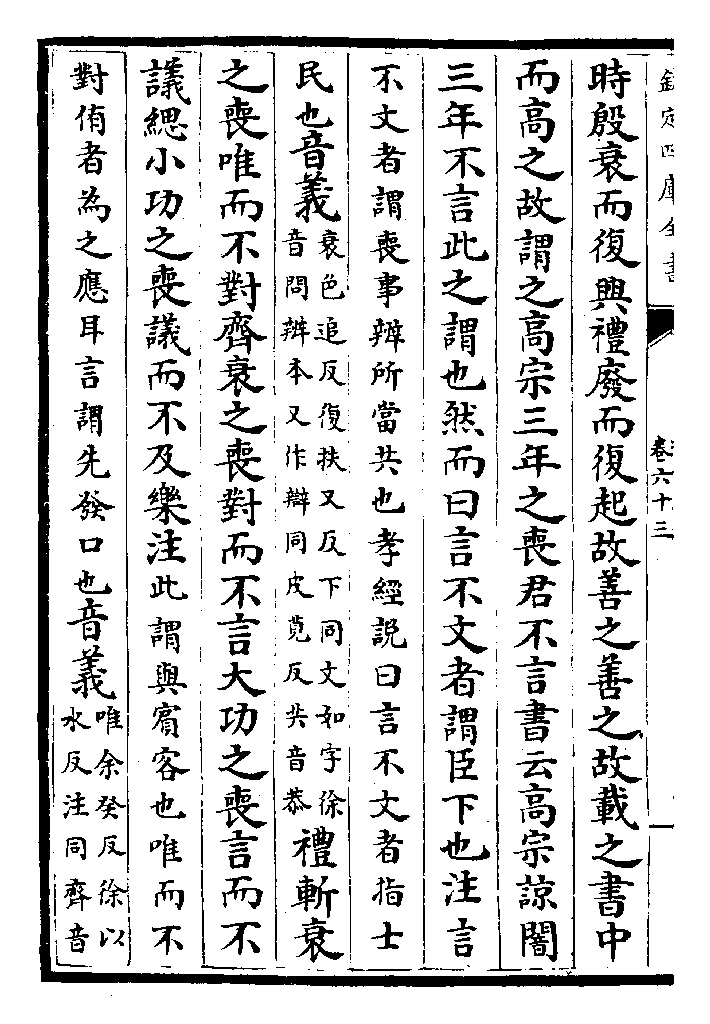 欽定四庫全書
卷六十三
時殷衰而復興禮廢而復起故善之善之故載之書中
而高之故謂之高宗三年之喪君不言書云高宗諒闇
三年不言此之謂也然而曰言不文者謂臣下也注言
不文者謂喪事辨所當共也孝經說曰言不文者指士
民也音義衰色追反復扶又反下同文如字徐
音問辨本又作辯同皮莧反共音恭禮斬衰
之喪唯而不對齊衰之喪對而不言大功之喪言而不
議緦小功之喪議而不及樂注此謂與賓客也唯而不
對侑者為之應耳言謂先發口也音義唯余癸反徐以
水反注同齊音